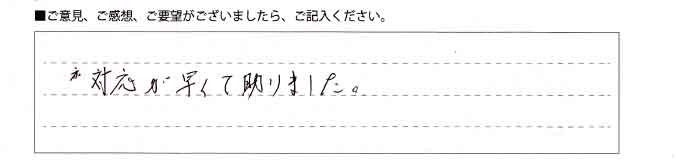 ■ご意見、ご感想、ご要望がございましたら、ご記入ください。
対応が早くて助りました。